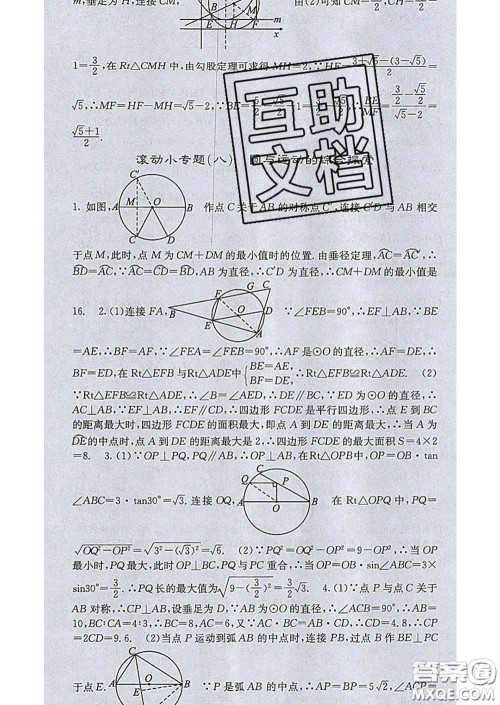 m,垂足为 H,连接 CM,
由(2)可知 CM=3/2,CH=
1=3/2,在 Rt△CMH 中,由勾股定理可求得 MH=2,∵HE=
√5,∴MF=HF-MH=√5-2,∵BE=
√5+1/2.
滚动小专题(八) 圆与运动的综合探究
1. 如图, 作点 C 关于 AB 的对称点 C′,连接 C′D 与 AB 相交
C′ M O A B C D
于点 M,此时,点 M 为 CM+DM 的最小值时的位置. 由垂径定理,AC=AC′,∴
BD=AC′,∵AC=CD=BD,AB 为直径,∴C′D 为直径,∴CM+DM 的最小值是
16. 2.(1)连接 FA, ∵∠FEB=90°,∴EF⊥AB,∵BE
=AE,∴BF=AF,∵∠FEA=∠FEB=90°,∴AF 是⊙O 的直径,∴AF=
DE,∴BF=ED,在 Rt△EFB 与 Rt△ADE 中{BE=AE, BF=DE, ∴Rt△EFB≌Rt△ADE. (2)
∵Rt△EFB≌Rt△ADE,∴∠B=∠AED,∴DE∥BC,∵ED 为⊙O 的直径,∴
AC⊥AB,∵EF⊥AB,∴EF∥CD,∴四边形 FCDE 是平行四边形,∴点 E 到 BC
的距离最大时,四边形 FCDE 的面积最大,即点 A 到 DE 的距离最大,∴当 A 为
DE的中点时,点 A 到 DE 的距离最大是 2,∴四边形 FCDE 的最大面积 S=4×2
=8. 3.(1)∵OP⊥PQ,PQ∥AB,∴OP⊥AB,在 Rt△OPB 中,OP=OB·tan
∠ABC=3·tan30°=√3. 连接 OQ, 在 Rt△OPQ 中,PQ=
√OQ²-OP²=√3²-(√3)²=√6. (2)∵PQ²=OQ²-OP²=9-OP²,∴当 OP
最小时,PQ 最大,此时 OP⊥BC,即 OP 与 PC 重合,∴当 OP=OB·sin∠ABC=3×
sin30°=3/2,∴PQ 长的最大值为√9-(3/2)²=3√3/2. 4.(1)∵点 P 与点 C 关于
AB 对称,∴CP⊥AB,设垂足为 D,∵AB 为⊙O 的直径,∴∠ACB=90°,∴AB=
10,BC∶CA=4∶3,∴BC=8,AC=6,又∵AC·BC=AB·CD,∴CD=4.8,∴CP
=2CD=9.6. (2)当点 P 运动到弧 AB 的中点时,连接 PB,过点 B 作 BE⊥PC
于点 E. ∵P 是弧 AB 的中点,∴AP=BP=5√2,∠ACP=
互助
文档
作业圈
MXQE.COM